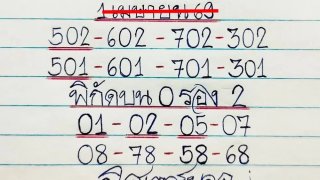 1 เมษายน 69
502-602-702-302
501-601-701-301
พิกัดบน 0 รอง 2
01-02-05-07
08-78-58-68